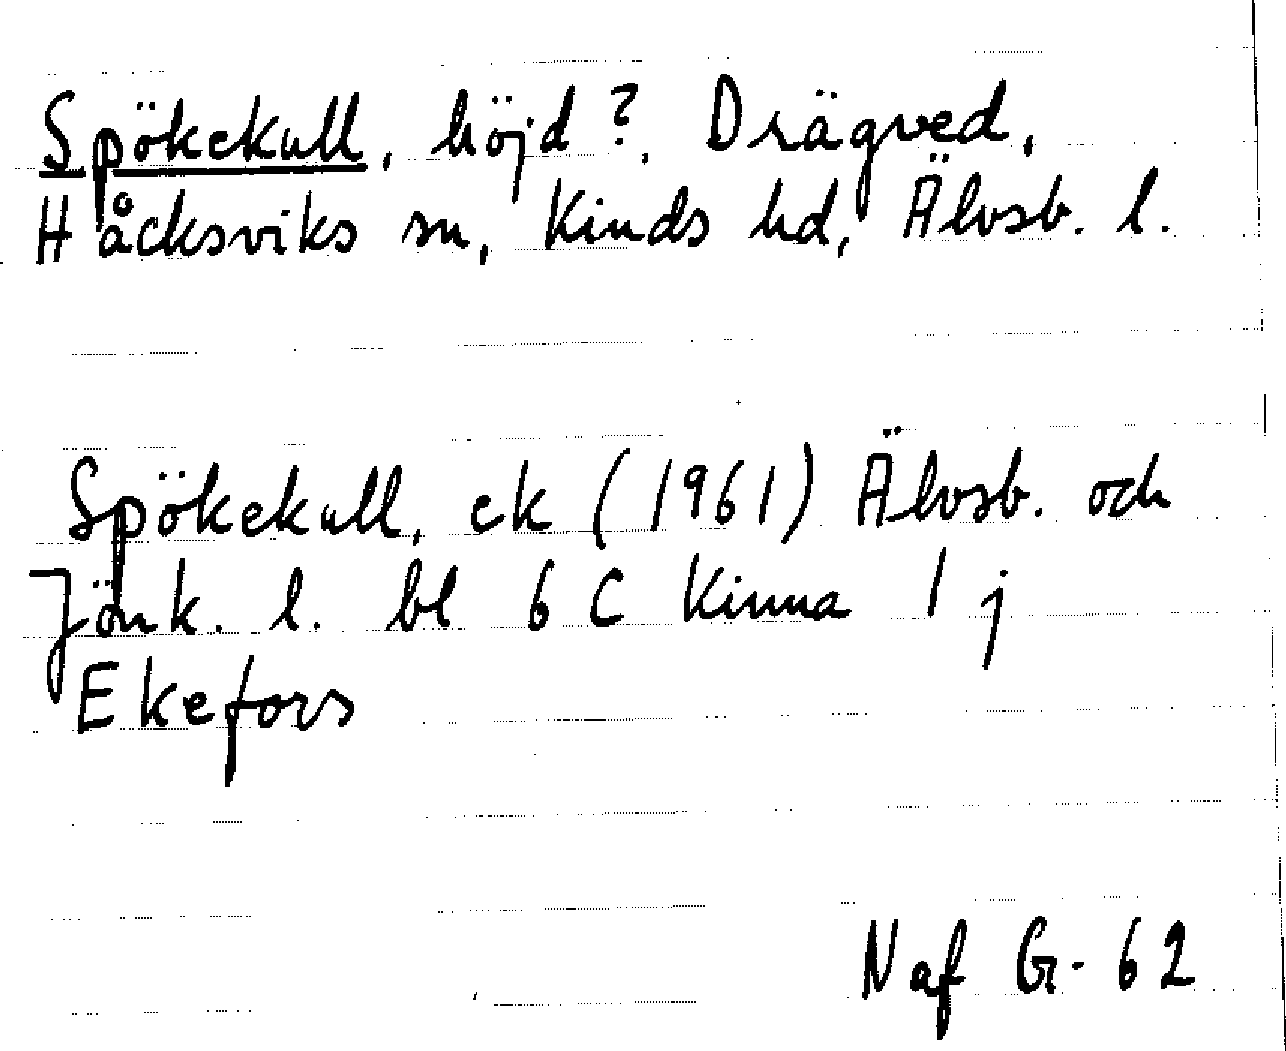 Spökekull, höjd?, Drägved,
Håcksviks sn, Kinds hd, Älvsb. l.
Spökekull, ek (1961) Älvsb. och
Jönk. l. bl 6 C Kinna 1 j
Ekefors
Naf G-62